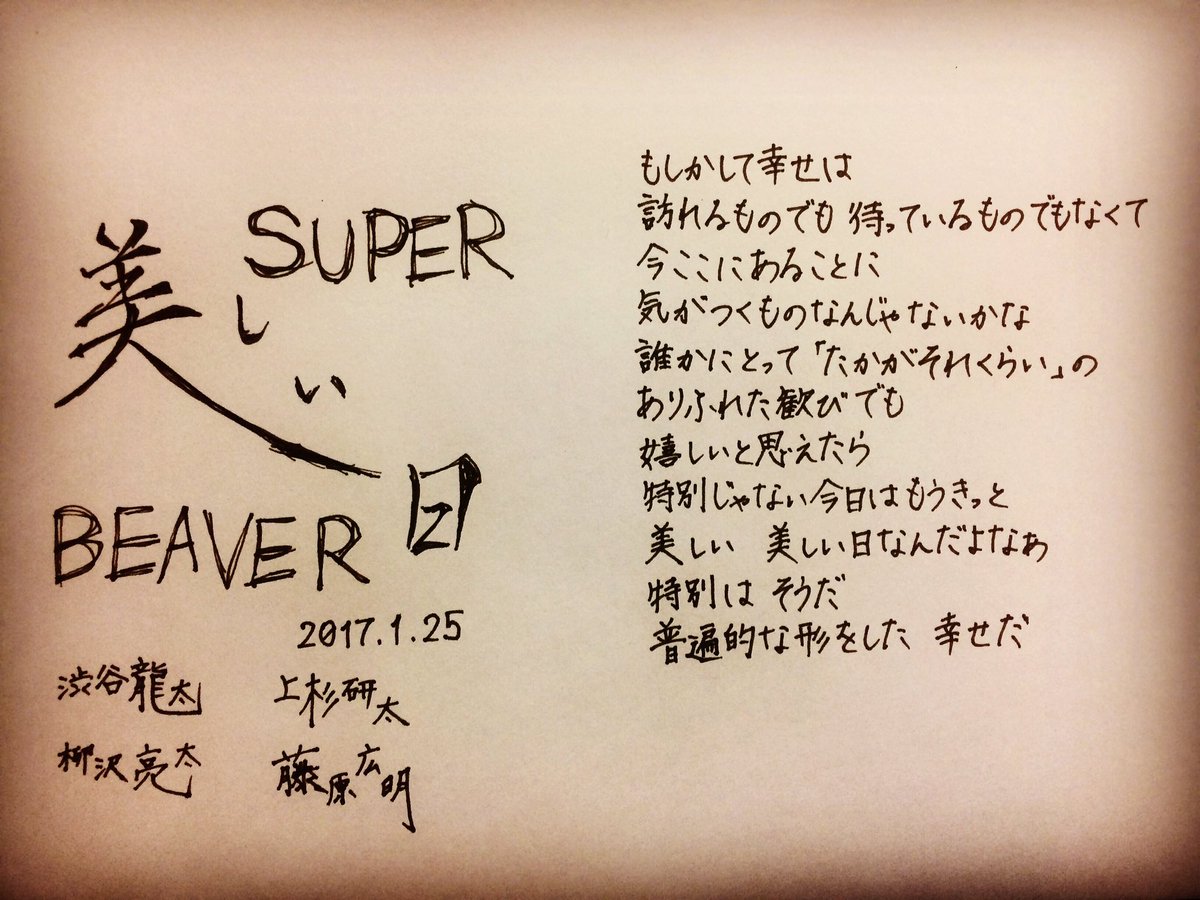 SUPER
美しい日
BEAVER
2017.1.25
渋谷龍太 上杉研太
柳沢亮太 藤原広明
もしかして幸せは
訪れるものでも 待っているものでもなくて
今ここにあることに
気がつくものなんじゃないかな
誰かにとって「たかがそれくらい」の
ありふれた歓びでも
嬉しいと思えたら
特別じゃない今日はもうきっと
美しい 美しい日なんだよなあ
特別は そうだ
普遍的な形をした 幸せだ